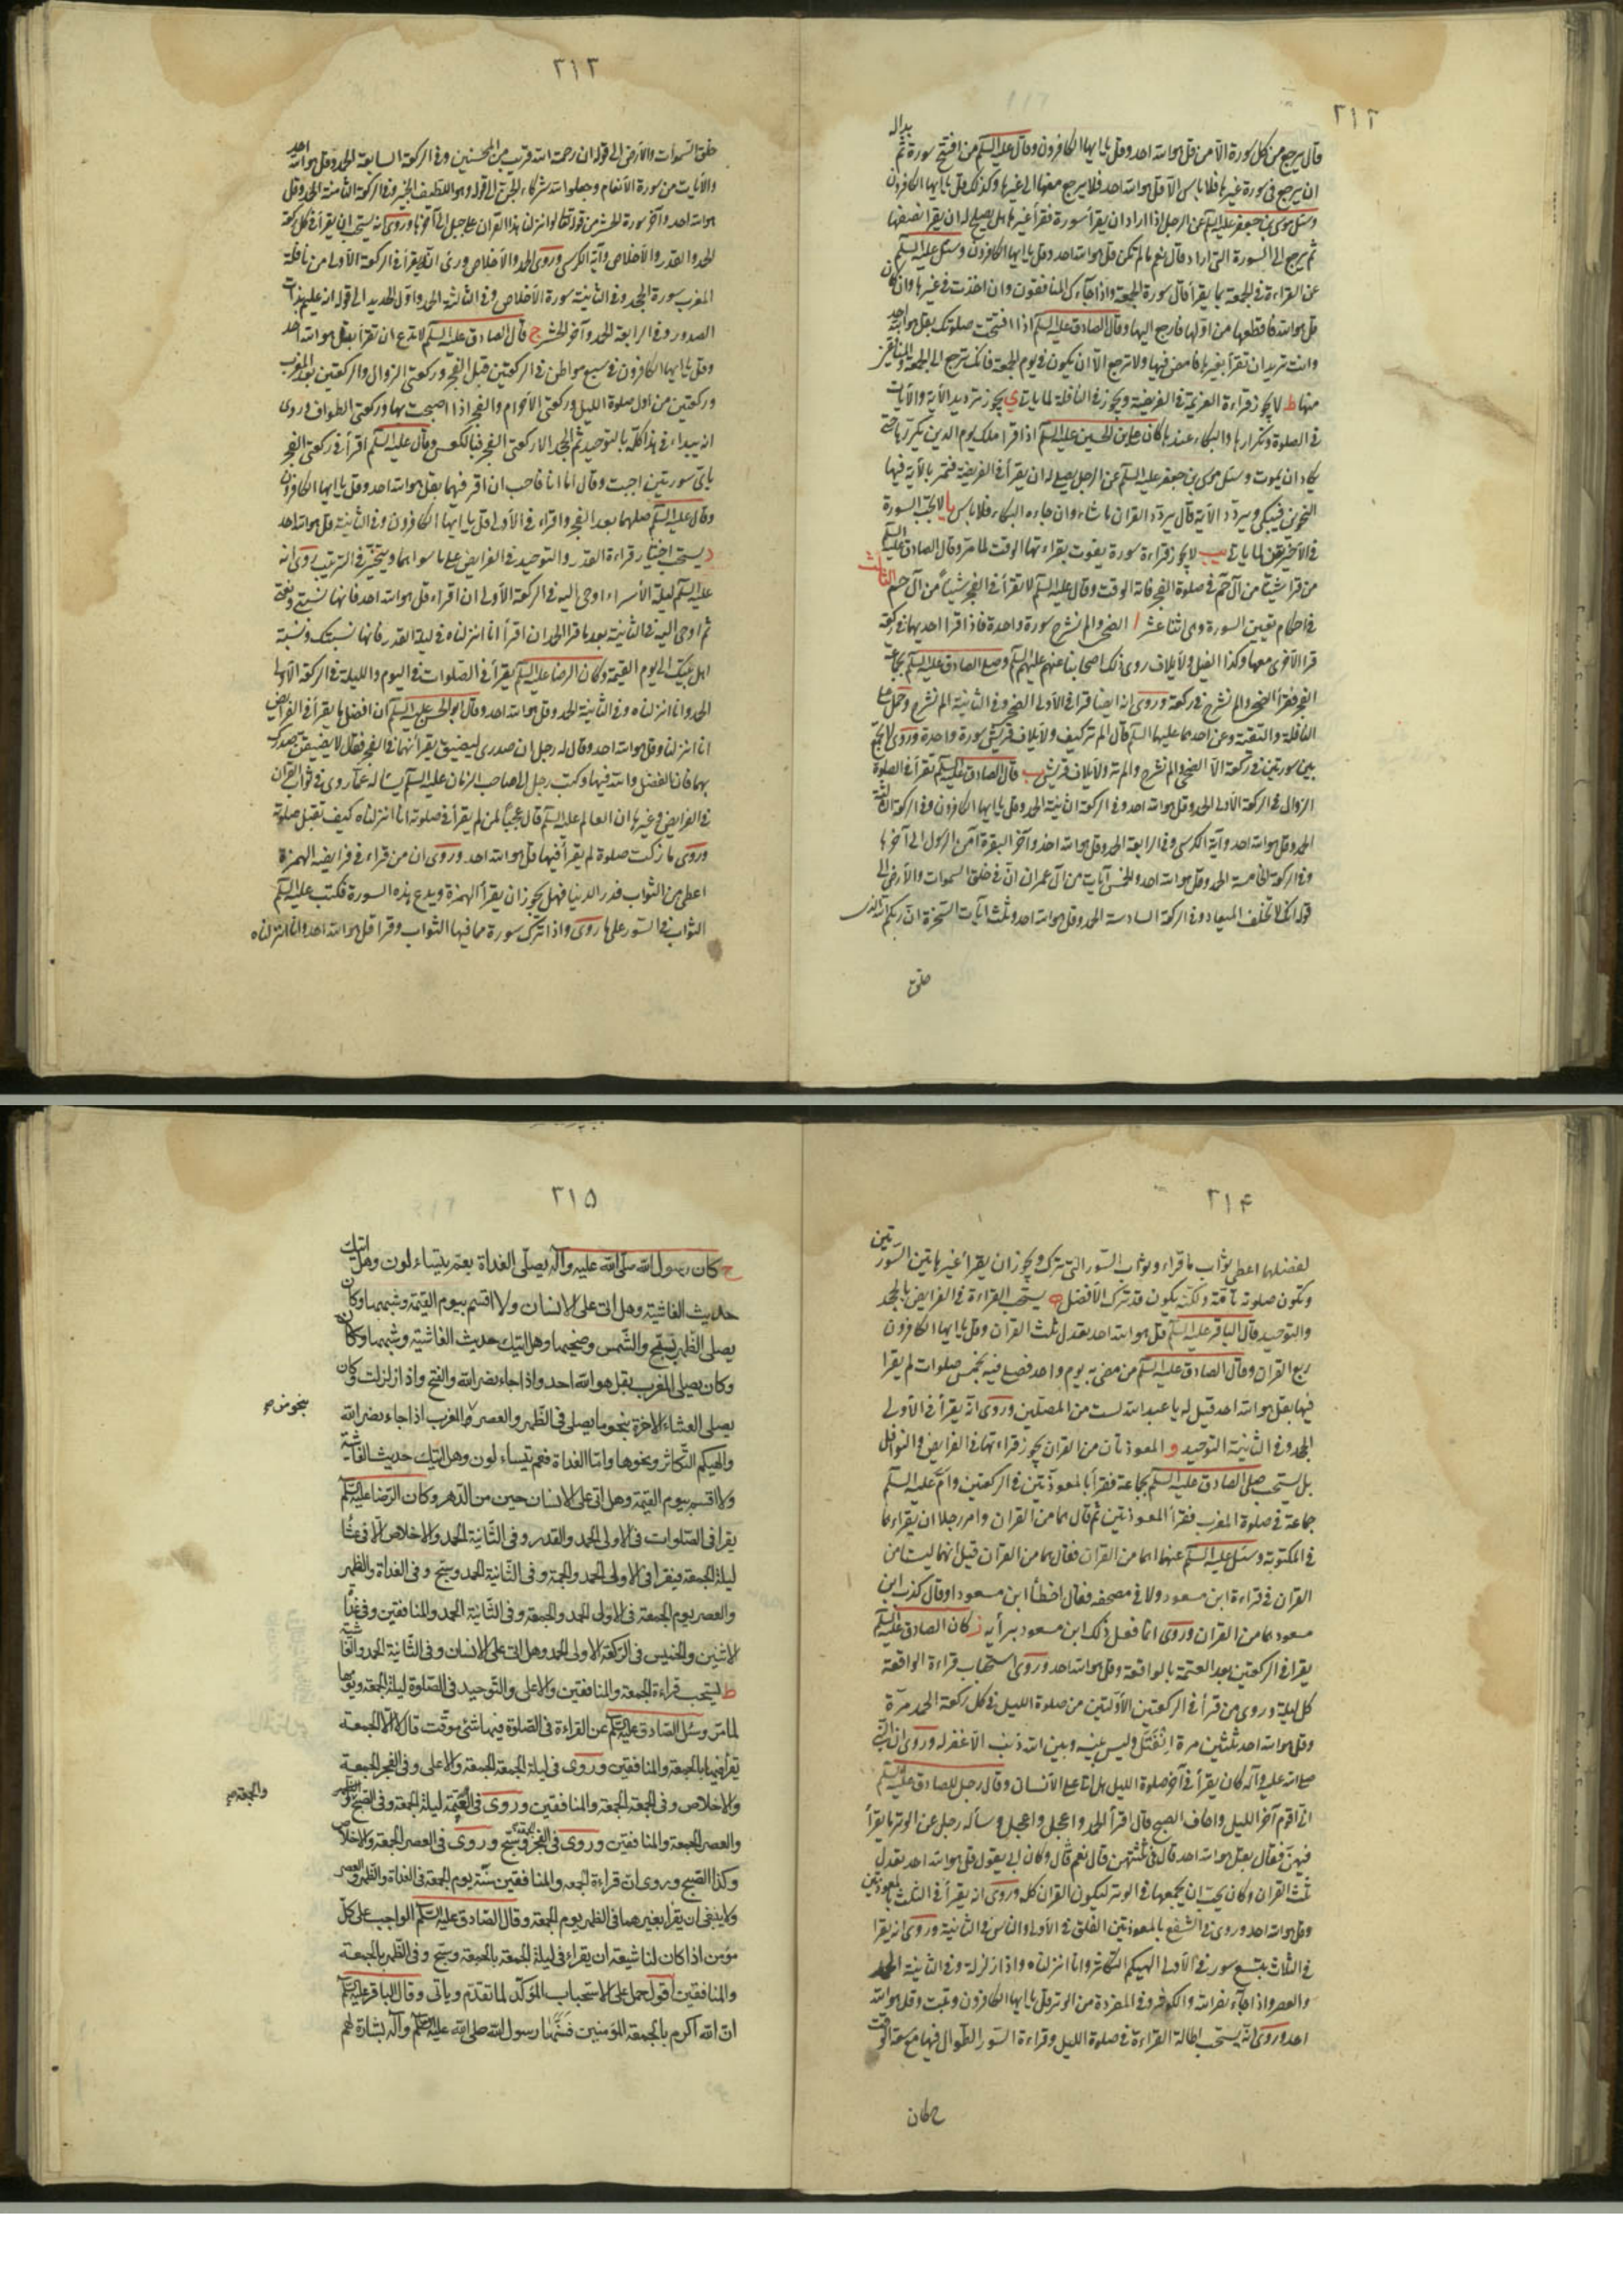 ٢١٢
بداله
قال يرجع من كل سورة الا من قل هو الله احد وقل يا ايها الكافرون وقال عليه السلم من افتتح سورة ثم
ان يرجع في سورة غيرها فلا باس الا قل هو الله احد فلا يرجع منها الى غيرها وكذلك قل يا ايها الكافرون
وسئل موسى بن جعفر عليه السلم عن الرجل اذا اراد ان يقرأ سورة فقرأ غيرها هل يصلح له ان يقرأ نصفها
ثم يرجع الى السورة التي اراد قال نعم ما لم تكن قل هو الله احد وقل يا ايها الكافرون وسئل عليه السلم
عن القراءة في الجمعة بما يقرأ قال سورة الجمعة واذا جاءك المنافقون وان اخذت في غيرها وان كان
قل هو الله فاقطعها من اولها فارجع اليها وقال الصادق عليه السلم اذا افتتحت صلوتك بقل هو الله احد
وانت تريد ان تقرأ بغيرها فامض فيها ولا ترجع الا ان يكون في يوم الجمعة فانك ترجع الى الجمعة والمنافقين
منها ط لا يجوز قراءة العزيمة في الفريضة ويجوز في النافلة لما ياتي ي يجوز ترديد الآية والآيات
في الصلوة وتكرارها والبكاء عندها كان علي بن الحسين عليه السلم اذا قرا ملك يوم الدين يكررها حتى
يكاد ان يموت وسئل موسى بن جعفر عليه السلم عن الرجل يصلي له ان يقرأ في الفريضة فتمر بالآية فيها
التخويف فيبكي ويردد الآية قال يردد القران ما شاء وان جاءه البكاء فلا باس يا لا يجب السورة
في الاخيرتين لما ياتي يب لا يجوز قراءة سورة يفوت بقراءتها الوقت لما مر وقال الصادق عليه السلم
من قرا شيئا من آل حم في صلوة الفجر فاته الوقت وقال عليه السلم لا تقرأ في الفجر شيئا من آل حم الثالث
في احكام تعيين السورة وهي اثنا عشر ا الضحى والم نشرح سورة واحدة فاذا قرا احديهما في ركعة
قرا الاخرى معها وكذا الفيل ولايلاف روى ذلك اصحابنا عنهم عليهم السلم وصلى الصادق عليه السلم بجماعة
الفجر فقرأ الضحى والم نشرح في ركعة وروى انه ايضا قرا في الاولى الضحى وفي الثانية الم نشرح وحمل على
النافلة والتقية وعن احدهما عليهما السلم قال الم تر كيف ولايلاف قريش سورة واحدة وروى لا تجمع
بين سورتين في ركعة الا الضحى والم نشرح والم تر ولايلاف قريش ب قال الصادق عليه السلم تقرأ في الصلوة
الزوال في الركعة الاولى الحمد وقل هو الله احد وفي الركعة الثانية الحمد وقل يا ايها الكافرون وفي الركعة الثالثة
الحمد وقل هو الله احد وآية الكرسي وفي الرابعة الحمد وقل هو الله احد وآخر البقرة آمن الرسول الى آخرها
وفي الركعة الخامسة الحمد وقل هو الله احد والخمس آيات من آل عمران ان في خلق السموات والارض الى
قوله انك لا تخلف الميعاد وفي الركعة السادسة الحمد وقل هو الله احد وثلث آيات السخرة ان ربكم الله الذي
خلق
٢١٣
خلق السموات والارض الى قوله ان رحمت الله قريب من المحسنين وفي الركعة السابعة الحمد وقل هو الله احد
والآيات من سورة الانعام وجعلوا لله شركاء الجن الى قوله وهو اللطيف الخبير وفي الركعة الثامنة الحمد وقل
هو الله احد وآخر سورة الحشر من قوله تعالى لو انزلنا هذا القران على جبل الى آخرها وروى انه يستحب ان يقرأ في كل ركعة
الحمد والقدر والاخلاص وآية الكرسي وروى الحمد والاخلاص وروى انه يقرأ في الركعة الاولى من نافلة
المغرب سورة الجحد وفي الثانية سورة الاخلاص وفي الثالثة الحمد واول الحديد الى قوله انه عليم بذات
الصدور وفي الرابعة الحمد وآخر الحشر ج قال الصادق عليه السلم لا تدع ان تقرأ بقل هو الله احد
وقل يا ايها الكافرون في سبع مواطن في الركعتين قبل الفجر وركعتي الزوال والركعتين بعد المغرب
وركعتين من اول صلوة الليل وركعتي الاحرام والفجر اذا اصبحت بها وركعتي الطواف وروى
انه يبداء في هذا كله بالتوحيد ثم الجحد الا ركعتي الفجر فبالعكس وقال عليه السلم اقرأ في ركعتي الفجر
باي سورتين احببت وقال اما انا فاحب ان اقر فيهما بقل هو الله احد وقل يا ايها الكافرون
وقال عليه السلم صلهما بعد الفجر واقراء في الاولى قل يا ايها الكافرون وفي الثانية قل هو الله احد
د يستحب اختيار قراءة القدر والتوحيد في الفرايض على ما سواهما ويتخير في الترتيب روى انه
عليه السلم ليلة الاسراء اوحى اليه في الركعة الاولى ان اقراء قل هو الله احد فانها نسبتي ونعتي
ثم اوحى اليه في الثانية بعد ما قرا الحمد ان اقرأ انا انزلناه في ليلة القدر فانها نسبتك ونسبة
اهل بيتك الى يوم القيمة وكان الرضا عليه السلم يقرأ في الصلوات في اليوم والليلة في الركعة الاولى
الحمد وانا انزلناه وفي الثانية الحمد وقل هو الله احد وقال ابو الحسن عليه السلم ان افضل ما يقرأ في الفرايض
انا انزلناه وقل هو الله احد وقال له رجل ان صدري ليضيق بقرأتهما في الفجر فقال لا يضيقن صدرك
بهما فان الفضل والله فيهما وكتب رجل الى صاحب الزمان عليه السلم يسأله عما روى في ثواب القران
في الفرايض وغيرها ان العالم عليه السلم قال عجبا لمن لم يقرأ في صلوته انا انزلناه كيف تقبل صلوته
وروى ما زكت صلوة لم يقرأ فيها قل هو الله احد وروى ان من قراء في فرايضه الهمزة
اعطي من الثواب قدر الدنيا فهل يجوز ان يقرأ الهمزة ويدع هذه السورة فكتب عليه السلم
الثواب في السور على ما روى واذا ترك سورة مما فيها الثواب وقرا قل هو الله احد وانا انزلناه
٢١۴
لفضلهما اعطي ثواب ما قراء وثواب السور التي ترك ويجوز ان يقرأ غير هاتين السورتين
وتكون صلوته تامة ولكنه يكون قد ترك الافضل ه يستحب القراءة في الفرايض بالجحد
والتوحيد قال الباقر عليه السلم قل هو الله احد يعدل ثلث القران وقل يا ايها الكافرون
ربع القران وقال الصادق عليه السلم من مضى به يوم واحد فصلى فيه بخمس صلوات لم يقرا
فيها بقل هو الله احد قيل له يا عبد الله لست من المصلين وروى انه يقرأ في الاولى
الجحد وفي الثانية التوحيد و المعوذتان من القران يجوز قراءتها في الفرايض والنوافل
بل يستحب صلى الصادق عليه السلم بجماعة فقرأ بالمعوذتين في الركعتين وام عليه السلم
جماعة في صلوة المغرب فقرأ المعوذتين ثم قال هما من القران وامر رجلا ان يقراءهما
في المكتوبة وسئل عليه السلم عنهما اهما من القران فقال هما من القران قيل انهما ليستا من
القران في قراءة ابن مسعود ولا في مصحفه فقال اخطأ ابن مسعود او قال كذب ابن
مسعود هما من القران وروى انما فعل ذلك ابن مسعود برأيه ز كان الصادق عليه السلم
يقرأ في الركعتين بعد العتمة بالواقعة وقل هو الله احد وروى استحباب قراءة الواقعة
كل ليلة وروى من قرأ في الركعتين الاولتين من صلوة الليل في كل ركعة الحمد مرة
وقل هو الله احد ثلثين مرة انفتل وليس بينه وبين الله ذنب الا غفر له وروى ان النبي
صلى الله عليه وآله كان يقرأ في آخر صلوة الليل هل اتى على الانسان وقال رجل للصادق عليه السلم
اني اقوم آخر الليل واخاف الصبح قال اقرأ الحمد واعجل واعجل وسأله رجل عن الوتر ما يقرأ
فيهن فقال بقل هو الله احد قال في ثلثتهن قال نعم قال وكان ابي يقول قل هو الله احد يعدل
ثلث القران وكان يحب ان يجمعها في الوتر ليكون القران كله وروى انه يقرأ في الثلث بالمعوذتين
وقل هو الله احد وروى في الشفع بالمعوذتين الفلق في الاولى والناس في الثانية وروى انه يقرا
في الثلاث بتسع سور في الاولى الهيكم التكاثر وانا انزلناه واذا زلزلة وفي الثانية الحمد
والعصر واذا جاء نصر الله والكوثر وفي المفردة من الوتر قل يا ايها الكافرون وتبت وقل هو الله
احد وروى انه يستحب اطالة القراءة في صلوة الليل وقراءة السور الطوال فيها مع سعة الوقت
ح كان
٢١۵
ح كان رسول الله صلى الله عليه وآله يصلي الغداة بعم يتساءلون وهل اتيك
حديث الغاشية وهل اتى على الانسان ولا اقسم بيوم القيمة وشبهها وكان
يصلي الظهر بسبح والشمس وضحيها وهل اتيك حديث الغاشية وشبهها وكان
وكان يصلي المغرب بقل هو الله احد واذا جاء نصر الله والفتح واذا زلزلت وكان
يصلي العشاء الاخرة بنحو ما يصلي في الظهر والعصر والمغرب اذا جاء نصر الله
بنحو من صح
والهيكم التكاثر ونحوها واما الغداة فعم يتساءلون وهل اتيك حديث الغاشية
ولا اقسم بيوم القيمة وهل اتى على الانسان حين من الدهر وكان الرضا عليه السلم
يقرا في الصلوات في الاولى الحمد والقدر وفي الثانية الحمد والاخلاص الا في عشاء
ليلة الجمعة فيقرا في الاولى الحمد والجمعة وفي الثانية الحمد وسبح وفي الغداة والظهر
والعصر يوم الجمعة في الاولى الحمد والجمعة وفي الثانية الحمد والمنافقين وفي غداة
الاثنين والخميس في الركعة الاولى الحمد وهل اتى على الانسان وفي الثانية الحمد والغاشية
ط يستحب قراءة الجمعة والمنافقين والاعلى والتوحيد في الصلوة ليلة الجمعة ويومها
لما مر وسئل الصادق عليه السلم عن القراءة في الصلوة فيها شئ موقت قال لا الا الجمعة
يقرأ فيها بالجمعة والمنافقين وروى في ليلة الجمعة الجمعة والاعلى وفي الفجر الجمعة
والاخلاص وفي الجمعة الجمعة والمنافقين وروى في العتمة ليلة الجمعة وفي الصبح والظهر
والجمعة صح
والعصر الجمعة والمنافقين وروى في الفجر الجمعة وسبح وروى في العصر الجمعة والاخلاص
وكذا الصبح وروى ان قراءة الجمعه والمنافقين سنة يوم الجمعة في الغداة والظهر والعصر
ولا ينبغي ان يقرأ بغيرهما في الظهر يوم الجمعة وقال الصادق عليه السلم الواجب على كل
مؤمن اذا كان لنا شيعة ان يقراء في ليلة الجمعة بالجمعة وسبح وفي الظهر بالجمعة
والمنافقين اقول حمل على الاستحباب المؤكد لما تقدم وياتي وقال الباقر عليه السلم
ان الله اكرم بالجمعة المؤمنين فسنها رسول الله صلى الله عليه وآله بشارة لهم